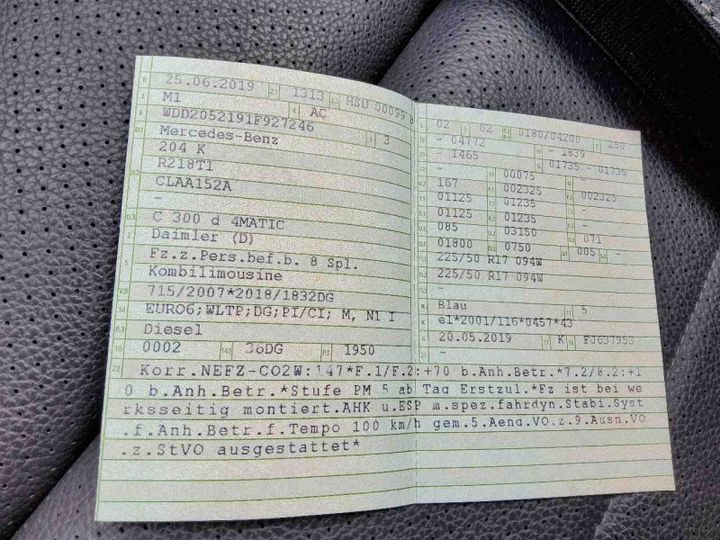 25.06.2019 1313 HSU 00099
M1 AC
WDD2052191F927246 3
Mercedes-Benz
204 K
R218T1
CLAA152A
-
C 300 d 4MATIC
Daimler (D)
Fz.z.Pers.bef.b. 8 Spl.
Kombilimousine
715/2007*2018/1832DG
EURO6;WLTP;DG;PI/CI; M, N1 I
Diesel
0002 36DG 1950
02 02 0180/04200 250
- 04772 - 1839
- 1465 01735 - 01735
- 00075 -
167 002325 002325
01125 01235 -
01125 01235 -
085 03150 071
01800 0750 005 -
225/50 R17 094W
225/50 R17 094W
-
Blau 5
e1*2001/116*0457*43
20.05.2019 K FJ637953
-
Korr.NEFZ-CO2W:147*F.1/F.2:+70 b.Anh.Betr.*7.2/8.2:+1
0 b.Anh.Betr.*Stufe PM 5 ab Tag Erstzul.*Fz ist bei we
rksseitig montiert.AHK u.ESP m.spez.fahrdyn.Stabi.Syst
.f.Anh.Betr.f.Tempo 100 km/h gem.5.Aend.VO.z.9.Ausn.VO
.z.StVO ausgestattet*